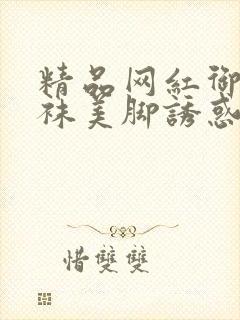 精品网红御
袜美脚誘惑
惜雙雙